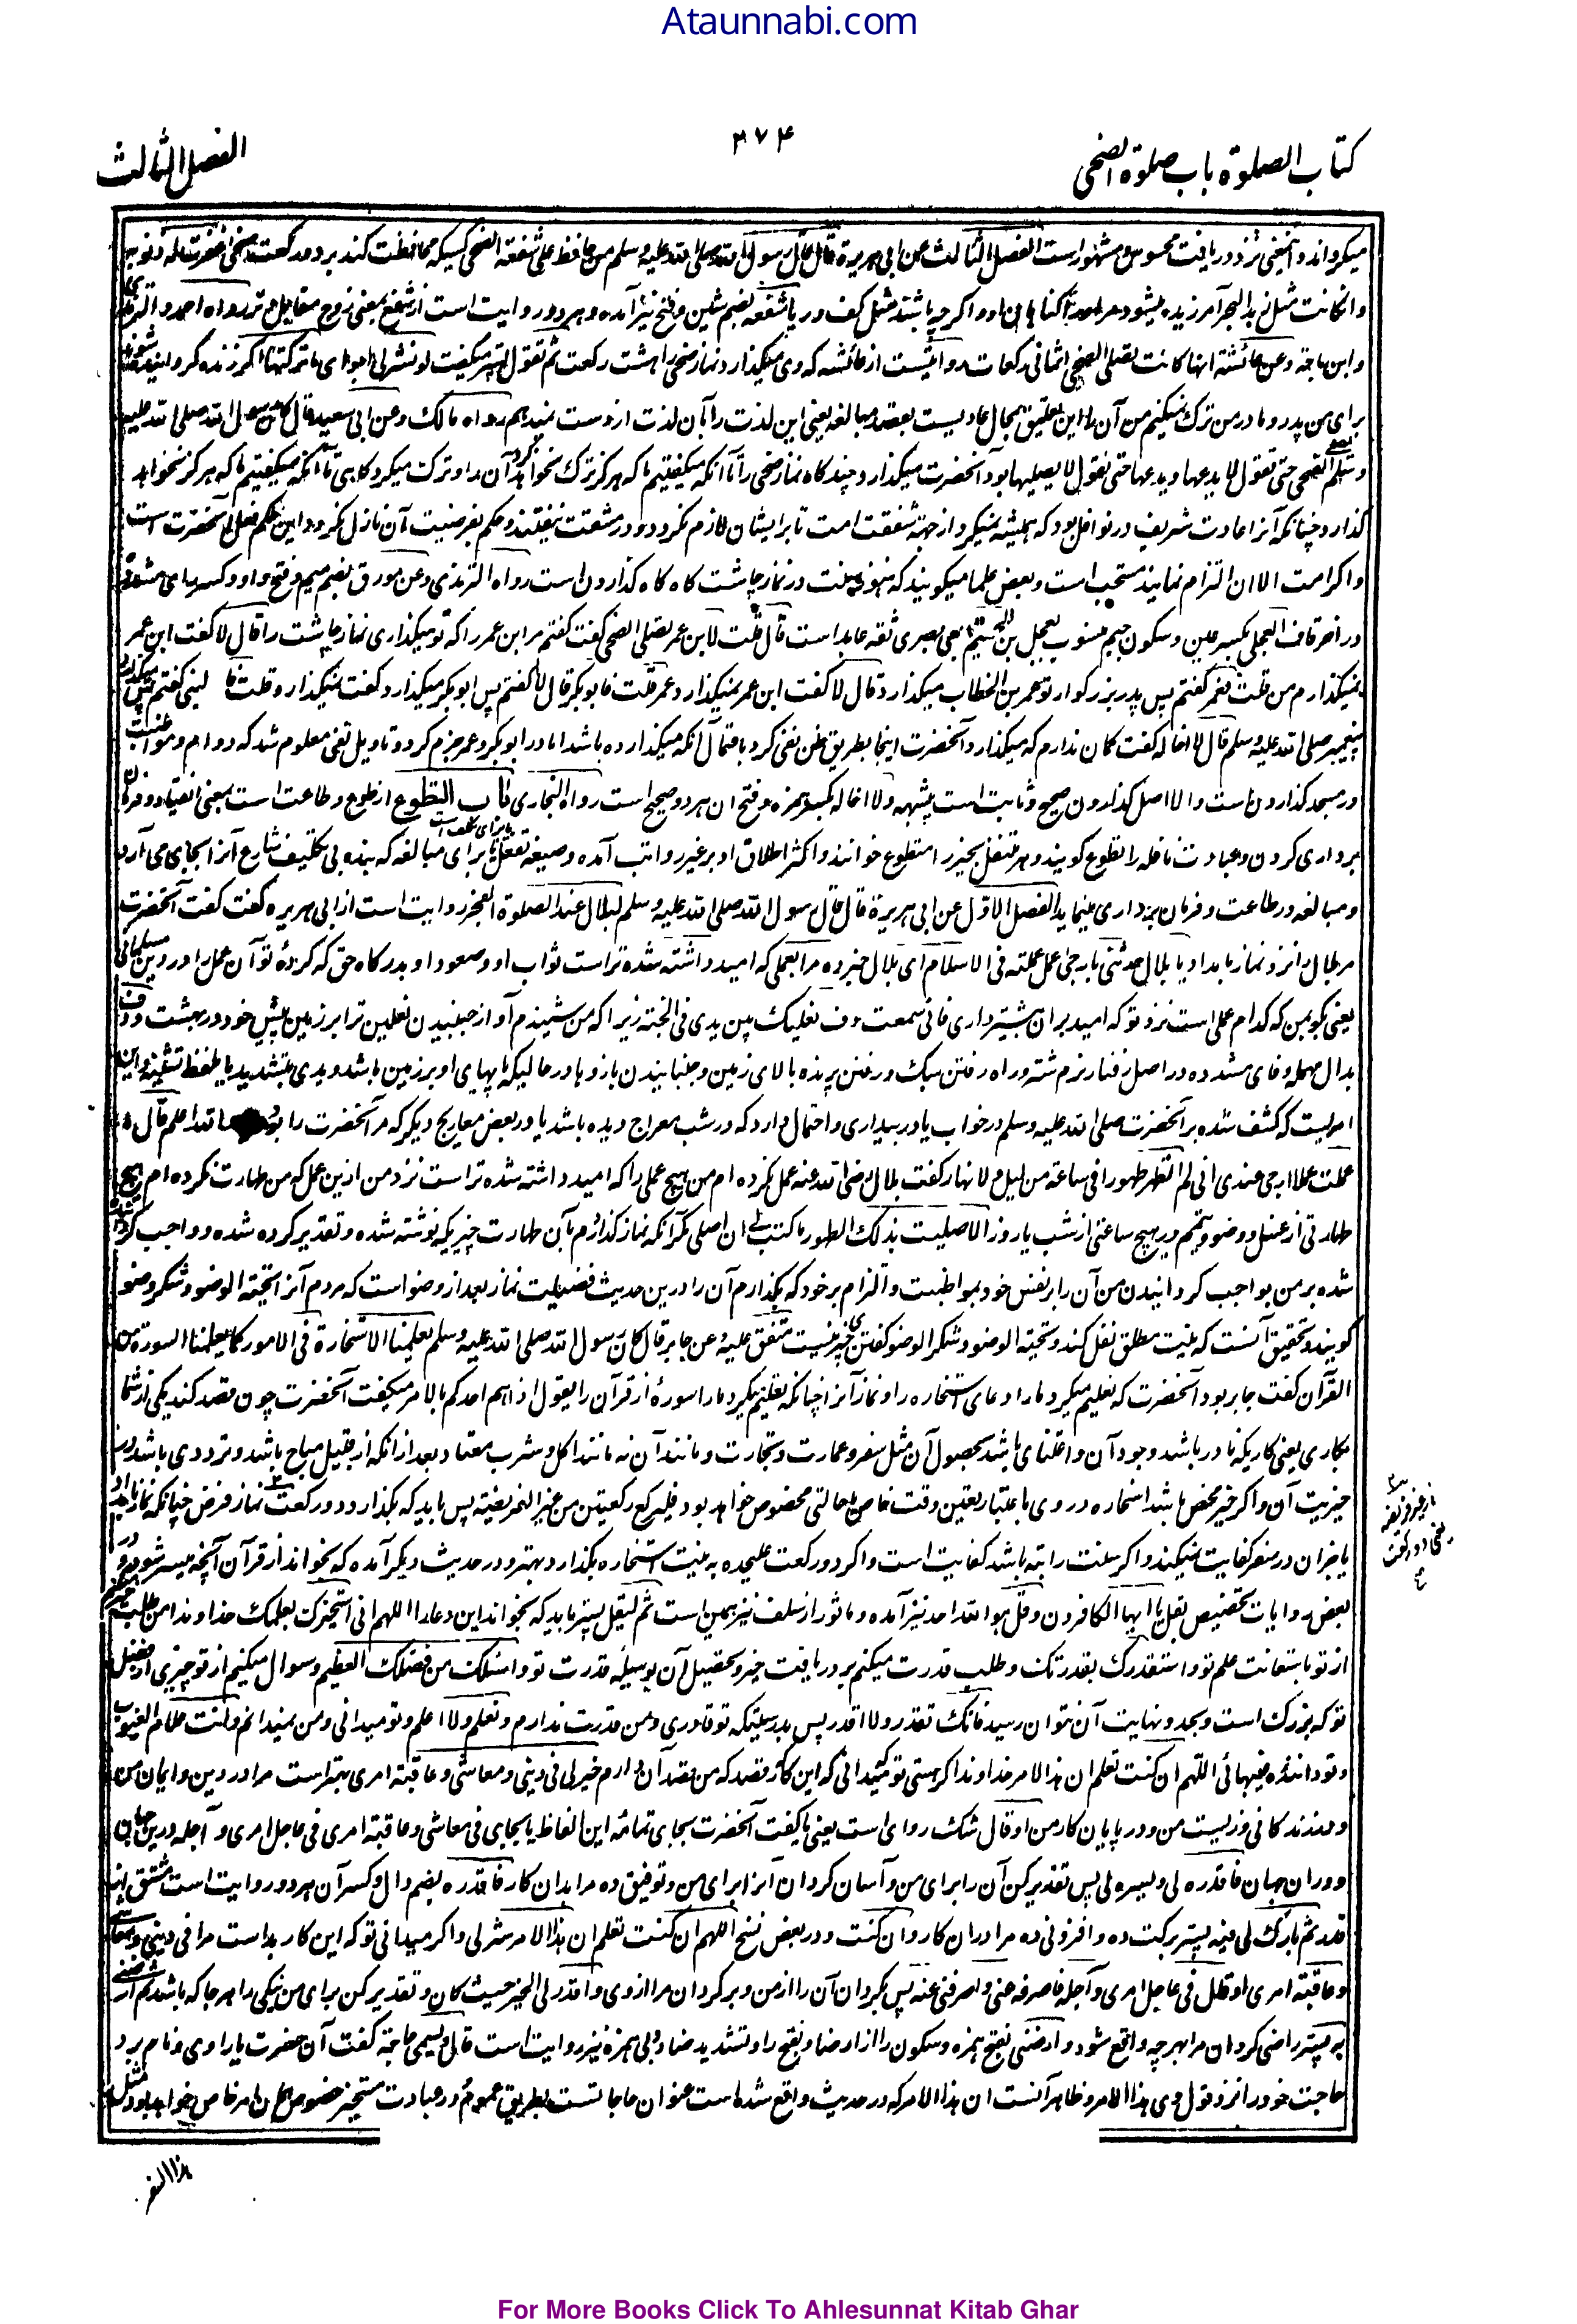 Ataunnabi.com
کتاب الصلوة باب صلوة الضحی
۳۷۴
الفصل الثالث
میگرداند و اینمعنی نزد دریافت محسوس و مشهود است الفصل الثالث عن ابی هریرة قال قال رسول الله صلی الله علیه وسلم من حافظ علی شفعة الضحی کسیکه محافظت کند بر دو رکعت ضحی غفرت له ذنوبه
وان کانت مثل زبد البحر آمرزیده میشود مر او را گناهان او و اگرچه باشند مثل کف دریا شفعه بضم شین و فتح نیز آمده و هر دو روایت است از شفع بمعنی زوج مقابل وتر رواه احمد والترمذی
وابن ماجة وعن عائشة انها کانت تصلی الضحی ثمانی رکعات روایتست از عائشه که وی میگذارد نماز ضحی را هشت رکعت ثم تقول پستر میگفت لو نشر لی ابوای ما ترکتها اگر زنده گردانیده شوند
برای من پدر و مادر من ترک نمیکنم من آن را این تعلیق بمحال عادیست بقصد مبالغه یعنی این لذت را بآن لذت از دست ندهم رواه مالک وعن ابی سعید قال کان رسول الله صلی الله علیه
وسلم یصلی الضحی حتی نقول لا یدعها ویدعها حتی نقول لا یصلیها بود آنحضرت میگذارد چندگاه نماز ضحی را تا آنکه میگفتیم ما که هرگز ترک نخواهد کرد آن را و ترک میکرد گاهی تا آنکه میگفتیم ما که هرگز نخواهد
گذارد چنانکه آنرا عادت شریف در نوافل بود که همیشه نمیکرد از جهة شفقت امت تا بر ایشان لازم نگردد و در مشقت نیفتند و حکم بفرضیت آن نازل نگردد و این حکم فعل آنحضرت است
و اگر امت الا ان التزام نمایند مستحب است و بعض علما میگویند که هنوز سنت در نماز چاشت گاه گاه گذاردن است رواه الترمذی وعن مورق بضم میم و فتح واو و کسر رای مشدده
در آخر قاف العجلی بکسر عین و سکون جیم منسوب بعجل بن لجیم تابعی بصری ثقه عابد است قال قلت لابن عمر تصلی الضحی گفت گفتم مر ابن عمر را که تو میگذاری نماز چاشت را قال لا گفت ابن عمر
نمیگذارم من قلت فعمر گفتم پس پدر بزرگوار تو عمر بن الخطاب میگذارد قال لا گفت ابن عمر نمیگذارد عمر قلت فابوبکر قال لا گفتم پس ابوبکر میگذارد گفت نمیگذارد قلت فالنبی گفتم پس میگذارد
پیغمبر صلی الله علیه وسلم قال لا اخاله گفت گمان ندارم که میگذارد آنحضرت اینجا بطریق ظن نفی کرد باحتمال آنکه میگذارده باشد اما در ابوبکر و عمر جزم کرد و تاویل نفی معلوم شد که دوام و مواظبت
در مسجد گذاردن است والا اصل گذاردن صحیح و ثابت است بیشبهه ولا اخاله بکسر همزه و فتح ان هر دو صحیح است رواه البخاری باب التطوع از طوع و طاعت است بمعنی انقیاد و فرمان
برداری کردن و عبادت نافله را تطوع گویند و هر متنفل بخیر را متطوع خوانند و اکثر اطلاق او بر غیر رواتب آمده و صیغه تفعل یا برای تکلف است یا برای مبالغه که بنده بی تکلیف شارع آنرا بجای می آرد
و مبالغه در طاعت و فرمان برداری مینماید الفصل الاول عن ابی هریرة قال قال رسول الله صلی الله علیه وسلم لبلال عند الصلوة الفجر روایت است از ابی هریره گفت گفت آنحضرت
مر بلال را نزد نماز بامداد یا بلال حدثنی بارجی عمل عملته فی الاسلام ای بلال خبر ده مرا بعملی که امید داشته شده تر است ثواب او و صعود او بدرگاه حق که کردۀ تو آن عمل را در دین مسلمانی
یعنی بگو بمن که کدام عمل است نزد تو که امید بر ان بیشتر داری فانی سمعت دف نعلیک بین یدی فی الجنة زیرا که من شنیدم آواز جنبیدن نعلین ترا بر زمین پیش خود در بهشت و دف
بدال مهمله و فای مشدده در اصل رفتار نرم شتر و راه رفتن سبک و رفتن پرنده بالای زمین و جنبانیدن بازوها در حالیکه پایهای او بر زمین باشد و یدی بتشدید یا بلفظ تثنیه و این
امریست که کشف شده بر آنحضرت صلی الله علیه وسلم در خواب یا در بیداری و احتمال دارد که در شب معراج دیده باشد یا در بعض معاریج دیگر که مر آنحضرت را بود والله اعلم قال ما
عملت عملا ارجی عندی انی لم اتطهر طهورا فی ساعة من لیل ولا نهار گفت بلال رضی الله عنه عمل نکرده ام من هیچ عملی را که امید داشته شده تر است نزد من ازین عمل که من طهارت نکرده ام هیچ
طهارتی از غسل و وضو و تیمم در هیچ ساعتی از شب یا روز الا صلیت بذلک الطهور ما کتب لی ان اصلی مگر آنکه نماز گذارم بآن طهارت چیزیکه نوشته شده و تقدیر کرده شده و واجب گردانیده
شده بر من بواجب گردانیدن من آن را بر نفس خود بمواظبت و التزام بر خود که بگذارم آن را درین حدیث فضیلت نماز بعد از وضو است که مردم آنرا تحیة الوضو و شکر وضو
گویند و تحقیق آنست که بنیت مطلق نفل کند و تحیة الوضو و شکر الوضو گفتن چیزی نیست متفق علیه وعن جابر قال کان رسول الله صلی الله علیه وسلم یعلمنا الاستخارة فی الامور کما یعلمنا السورة من
القرآن گفت جابر بود آنحضرت که تعلیم میکرد ما را دعای استخاره را و نماز آنرا چنانکه تعلیم میکرد ما را سورۀ از قرآن را یقول اذا هم احدکم بالامر میگفت آنحضرت چون قصد کند یکی از شما
بکاری یعنی کاریکه نادر باشد وجود آن و اعتنای باشد بحصول آن مثل سفر و عمارت و تجارت و مانند آن نه مانند اکل و شرب معتاد بعد از آنکه از قبیل مباح باشد و ترددی باشد در
خیریت آن و اگر خیر محض باشد استخاره در وی باعتبار تعیین وقت خاص یا حالتی مخصوص خواهد بود فلیرکع رکعتین من غیر الفریضة پس باید که بگذارد دو رکعت نماز فرض چنانکه نماز بامداد
یا جز ان در سفر کفایت نمیکند و اگر سنت راتبه باشد کفایت است و اگر دو رکعت علیحده به نیت استخاره بگذارد بهتر و در حدیث دیگر آمده که بخواند از قرآن آنچه میسر شود و در
بعض روایات تخصیص بقل یا ایها الکافرون و قل هو الله احد نیز آمده و ماثور از سلف نیز همین است ثم لیقل پستر باید که بخواند این دعا را اللهم انی استخیرک بعلمک خداوندا من طلب خیر میکنم
از تو باستعانت علم تو و استقدرک بقدرتک و طلب قدرت میکنم بر دریافت خیر و تحصیل آن بوسیله قدرت تو و اسئلک من فضلک العظیم و سوال میکنم از تو چیزی از فضل
تو که بزرگ است و بحد و نهایت آن نتوان رسید فانک تقدر ولا اقدر پس بدرستیکه تو قادری و من قدرت ندارم و تعلم ولا اعلم و تو میدانی و من نمیدانم وانت علام الغیوب
و تو داننده غیبهائی اللهم ان کنت تعلم ان هذا الامر خداوندا اگر هستی تو که میدانی که این کار قصد که من قصد آن دارم خیر لی فی دینی ومعاشی وعاقبة امری بهتر است مرا در دین و ایمان من
و در زندگانی و زیست من و در پایان کار من او قال شک راوی است یعنی یا گفت آنحضرت بجای تمامۀ این الفاظ یا بجای فی معاشی وعاقبة امری فی عاجل امری وآجله درین جهان
و در ان جهان فاقدره لی ویسره لی پس تقدیر کن آن را برای من و آسان گردان آنرا برای من و توفیق ده مرا بدان کار فاقدره بضم دال و کسر آن هر دو روایت است مشتق از
قدر ثم بارک لی فیه پستر برکت ده و افزونی ده مرا در ان کار و ان کنت و در بعض نسخ اللهم ان کنت تعلم ان هذا الامر شر لی و اگر میدانی تو که این کار بد است مرا فی دینی ومعاشی
وعاقبة امری او قال فی عاجل امری وآجله فاصرفه عنی واصرفنی عنه پس بگردان آن را از من و برگردان مرا از وی واقدر لی الخیر حیث کان و تقدیر کن برای من نیکی را هر جا که باشد ثم ارضنی
به پستر راضی گردان مرا بهر چه واقع شود و ارضنی بفتح همزه و سکون را از ارضا و بفتح را و تشدید ضاد بی همزه نیز روایت است قال ویسمی حاجته گفت آن حضرت یا راوی و نام برد
حاجت خود را نزد قول وی هذا الامر و ظاهر آنست ان هذا الامر که در حدیث واقع شده است عنوان حاجات است بطریق عموم و در عبادت مستخیر خصوص آن امر خاص خواهد بود مثل
هذا السفر
For More Books Click To Ahlesunnat Kitab Ghar